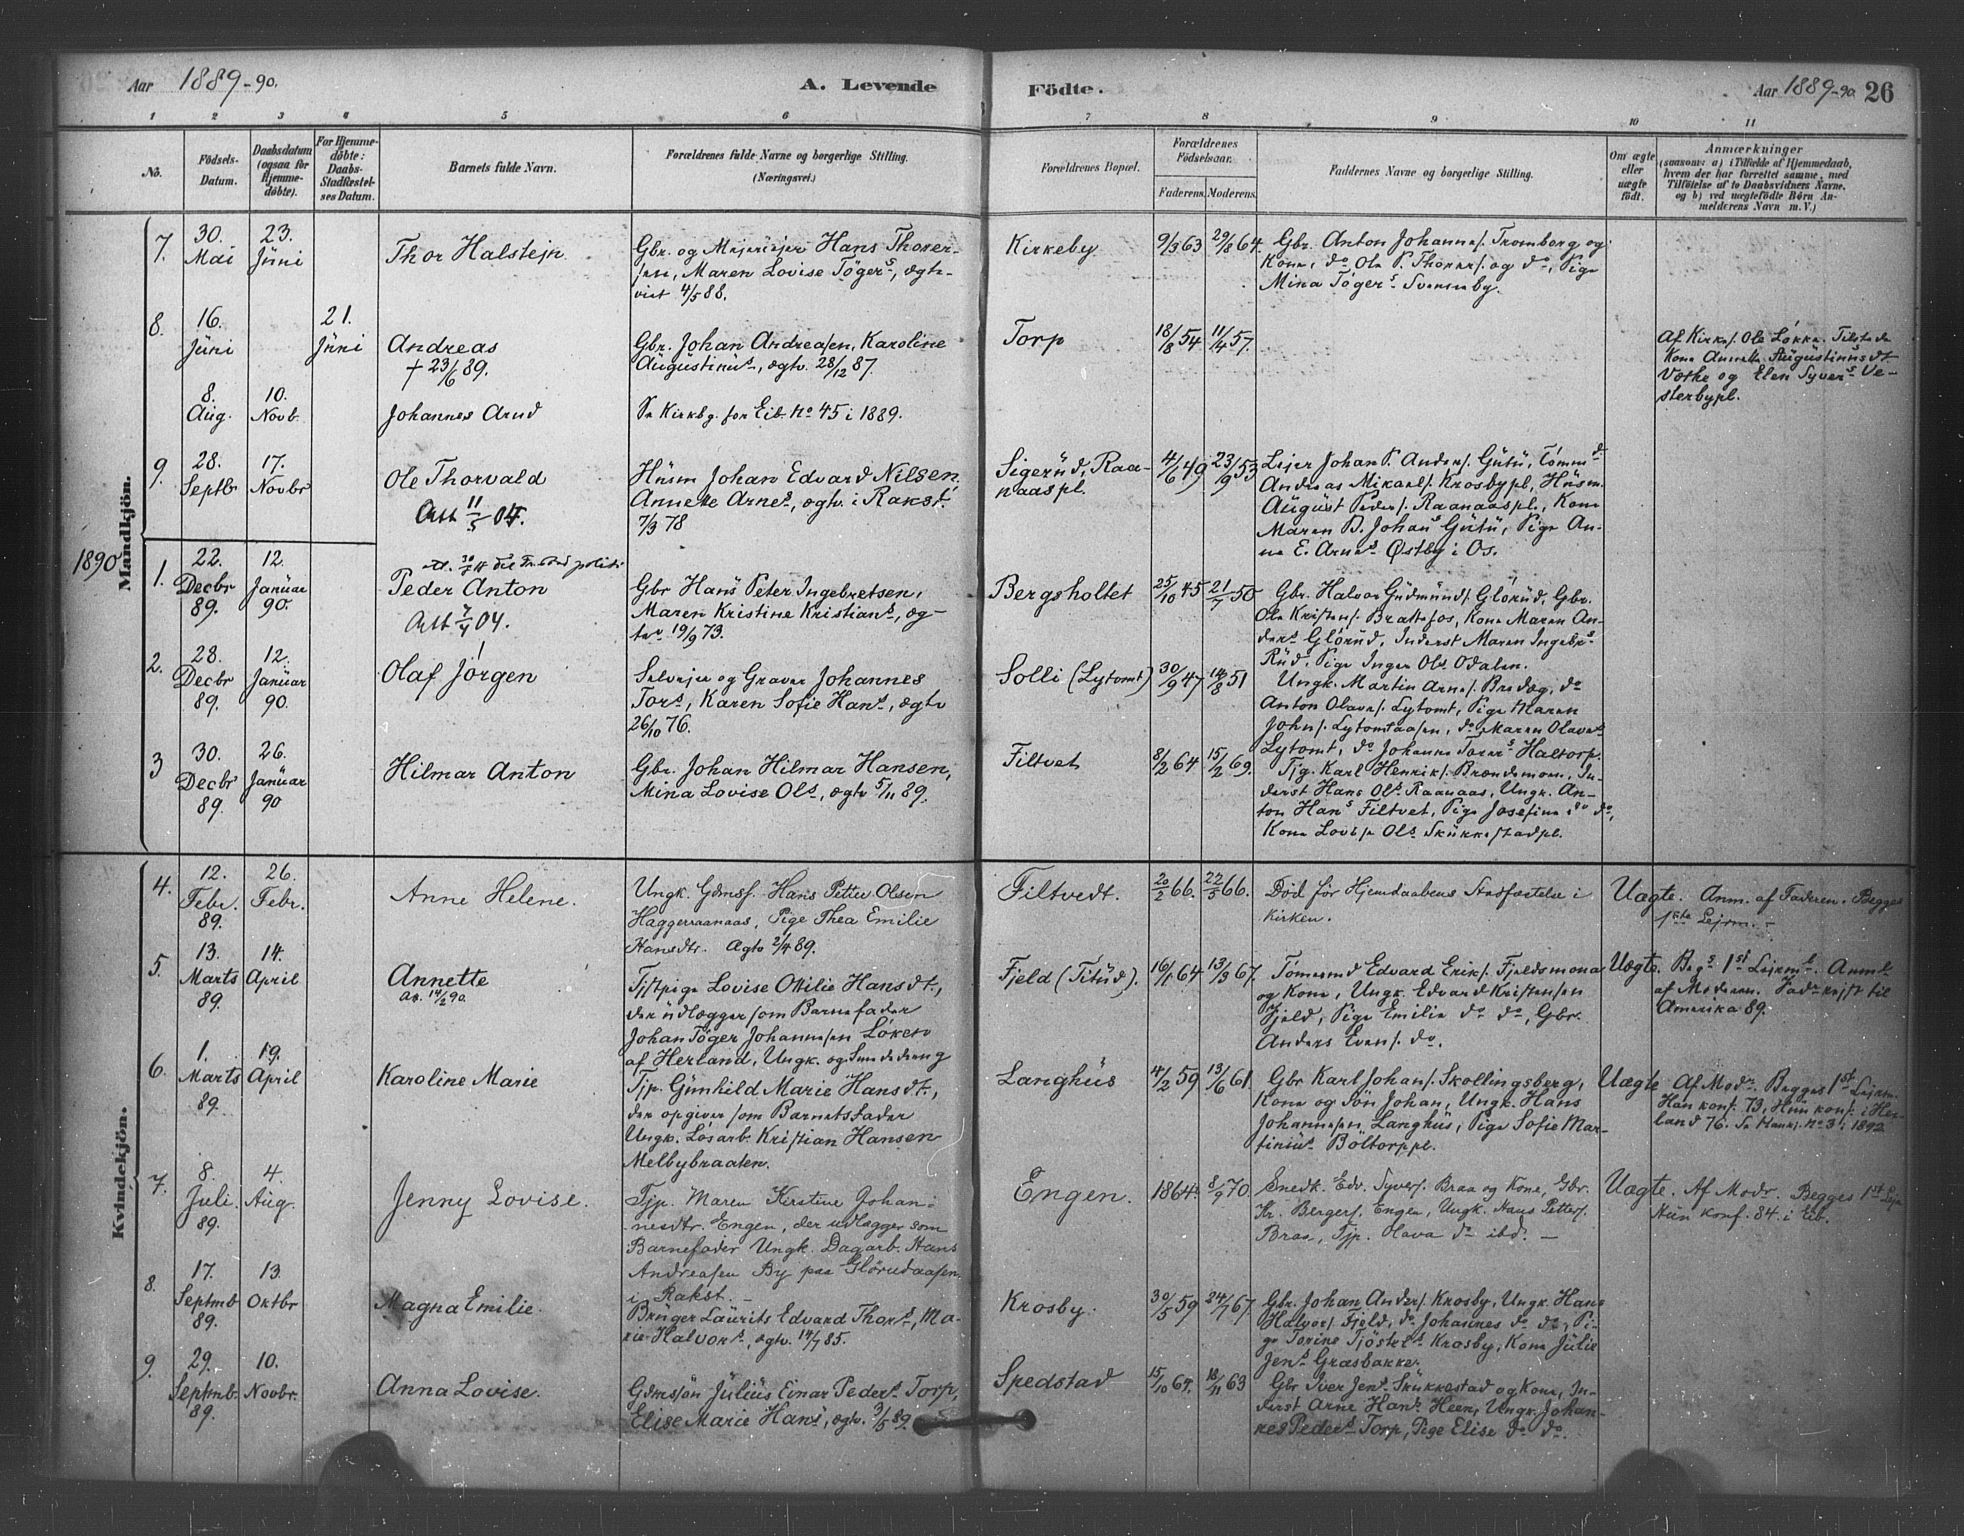 Aar 1889-90. A. Levende Födte. Aar 1889-90. 26
1 2 3 4 5 6 7 8 9 10 11
No. Födsels-Datum. Daabsdatum (ogsaa for Hjemmedöbte). For Hjemmedöbte: Daabs-Stadfæstelses Datum. Barnets fulde Navn. Forældrenes fulde Navne og borgerlige Stilling. (Næringsvei.) Forældrenes Bopæl. Forældrenes Födselsaar. Faderens. Moderens. Faddernes Navne og borgerlige Stilling. Om ægte eller uægte födt. Anmærkninger
(saasom: a) i Tilfælde af Hjemmedaab,
hvem der har forrettet samme, med
Tilföielse af to Daabsvidners Navne,
og b) ved uægtefödte Börn An-
melderens Navn m. V.)
Mandkjön.
7. 30. Mai 23. Juni
Thor Halstejn
Gbr. og Mejeriejer Hans Thorer-
sen, Maren Lovise Tögers, ægte-
viet 4/5 88.
Kirkeby 9/3 63 29/8 64
Gbr. Anton Johannes. Tromborg og
Kone, do Ole P. Thorers. og do, Pige
Mina Tögers Svenneby.
8. 16. Juni 21. Juni
Andreas
† 23/6 89.
Gbr. Johan Andreasen, Karoline
Augustinus, ægtv. 28/12 87.
Torp 18/8 54 11/4 57.
Af Kirkes. Ole Løkke Tilstede
Kone Annette Augustinusdt
Væthe og Elen Syvers Ve-
sterbypl.
8. Aug. 10. Novb.
Johannes Arud
Se Kirkbg. for Eib. No 45 i 1889.
9. 28. Septbr 17. Novbr
Ole Thorvald
Att 11/5 04.
Husm Johan Edvard Nilsen
Annette Arnes, ægtv. i Rakst.
7/3 78
Sigerud, Raa-
naaspl. 4/6 49 23/9 53
Lejer Johan P. Anders. Gutu, Tömmd
Andreas Mikaels. Krosbypl, Husm.
August Peders. Raanaaspl., Kone
Maren P. Johans Gutu, Pige An-
na E. Arnes Østby i Os.
1890
1. 22. Decbr 89. 12. Januar 90.
Peder Anton
Att 7/4 04.
Gbr Hans Peter Ingebretsen,
Maren Kristine Kristians, æg-
tev 19/9 73.
Bergsholtet 25/10 45 21/7 50
Gbr. Halvor Gudmunds. Glörud, Gbr.
Ole Kristens. Brattefos, Kone Maren An-
ders Glörud, Inderst Maren Ingebrs
Rud, Pige Inger Ols Odalen.
2. 28. Decbr 89. 12. Januar 90.
Olaf Jörgen
Selvejer og Graver Johannes
Tors, Karen Sofie Hans, ægtv
26/10 76.
Solli (Lytomt) 30/9 47 14/8 51
Ungk. Martin Arnes. Bredeg, do
Anton Olaves. Lytomt, Pige Maren
Johns. Lytomtaasen, do Maren Olaves
Lytomt, do Johanne Torers Haltorp.
3 30. Decbr 89. 26. Januar 90
Hilmar Anton
Gbr. Johan Hilmar Hansen,
Mina Lovise Ols, ægtv 5/11 89.
Filtvet 8/2 64 15/2 69.
Tjg. Karl Henriks. Brændemoen, In-
derst Hans Ols Raanaas, Ungk. An-
ton Hans Filtvet, Pige Josefine do do,
Kone Lovise Ols Skukkestadpl.
Kvindekjön.
4. 12. Febr. 89. 26. Febr.
Anne Helene.
Ungk. Gdmsf. Hans Petter Olsen
Haggerraanaas, Pige Thea Emilie
Hansdtr. Agtv 2/4 89.
Filtvedt. 20/2 66. 22/5 66.
Død før Hjemdaabens Stadfæstelse i
Kirken.
Uægte. Anm. af Faderen. Begges
1ste Lejrm. -
5. 13. Marts 89. 14. April
Annette
Att. 14/2 90.
Tjstpige Lovise Otilie Hansdt.,
der udlægger som Barnefader
Johan Töger Johannesen Løken
af Herland, Ungk. og Smededreng
Fjeld (Titud). 16/1 64 13/3 67.
Tömmermd Edvard Eriks. Fjeldsmona
og Kone, Ungk. Edvard Kristensen
Fjeld, Pige Emilie do do, Gbr.
Anders Evens. do.
Uægte. Begs 1st Lejrml. Anml
af Moderen. Fadr rejst til
Amerika 89.
6. 1. Marts 89. 19. April
Karoline Marie
Tjp. Gunhild Marie Hansdt.,
der opgiver som Barnets fader
Ungk. Løsarb. Kristian Hansen
Melbybraaten.
Langhus 4/2 59 13/6 61.
Gbr Karl Johans. Skollingsberg,
Kone og Søn Johan, Ungk. Hans
Johannesen Langhus, Pige Sofie Mar-
tinius Böltorppl.
Uægte Af Modr. Begges 1st Lejrm.
Han konf. 73, Hun konf. i Her-
land 76. Se No 3 i 1892
7. 8. Juli. 89. 4. Aug.
Jenny Lovise.
Tjp. Maren Kirstine Johan-
nesdtr. Engen, der udlægger som
Barnefader Ungk. Dagarb. Hans
Andreasen By paa Glørudaasen
i Rakst. -
Engen. 1864. 8/9 70.
Snedk. Edv. Syvers. Braa og Kone, Gbr.
Kr. Bergers. Engen, Ungk. Hans Petters.
Braa, Tjp. Olava do ibd. -
Uægte. Af Modr. Begges 1st Lejrm
Hun konf. 84. i Eib.
8. 17. Septmb 89. 13. Oktbr
Magna Emilie.
Bruger Laurits Edvard Thors, Ma-
rie Halvors, ægtv. 14/7 85.
Krosby. 30/5 59 24/7 67.
Gbr. Johan Anders. Krosby, Ungk. Hans
Halvors. Fjeld, do Johannes do do, Pi-
ge Torine Tjöstels Krosby, Kone Julie
Jens Græsbakke.
9. 29. Septmb. 89. 10. Novbr.
Anna Lovise.
Gdmssøn Julius Einar Peders Torp,
Elise Marie Hans, ægtv. 3/5 89.
Spedstad 15/10 64. 18/11 63
Gbr Iver Jens Skukkestad og Kone, In-
derst Arne Hans Heen, Ungk. Johan-
nes Peders Torp, Pige Elise do do.